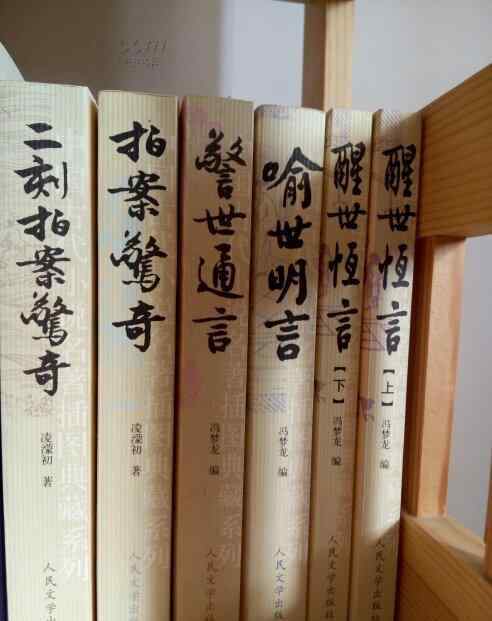 二刻拍案驚奇
凌濛初 著
人民文学出
拍案驚奇
凌濛初 著
人民文学出版
警世通言
冯梦龙 编
人民文学出版
喻世明言
冯梦龙 编
人民文学出版社
醒世恒言
【下】
冯梦龙 编
人民文学出版社
醒世恒言
【上】
冯梦龙 编
人民文学出版社